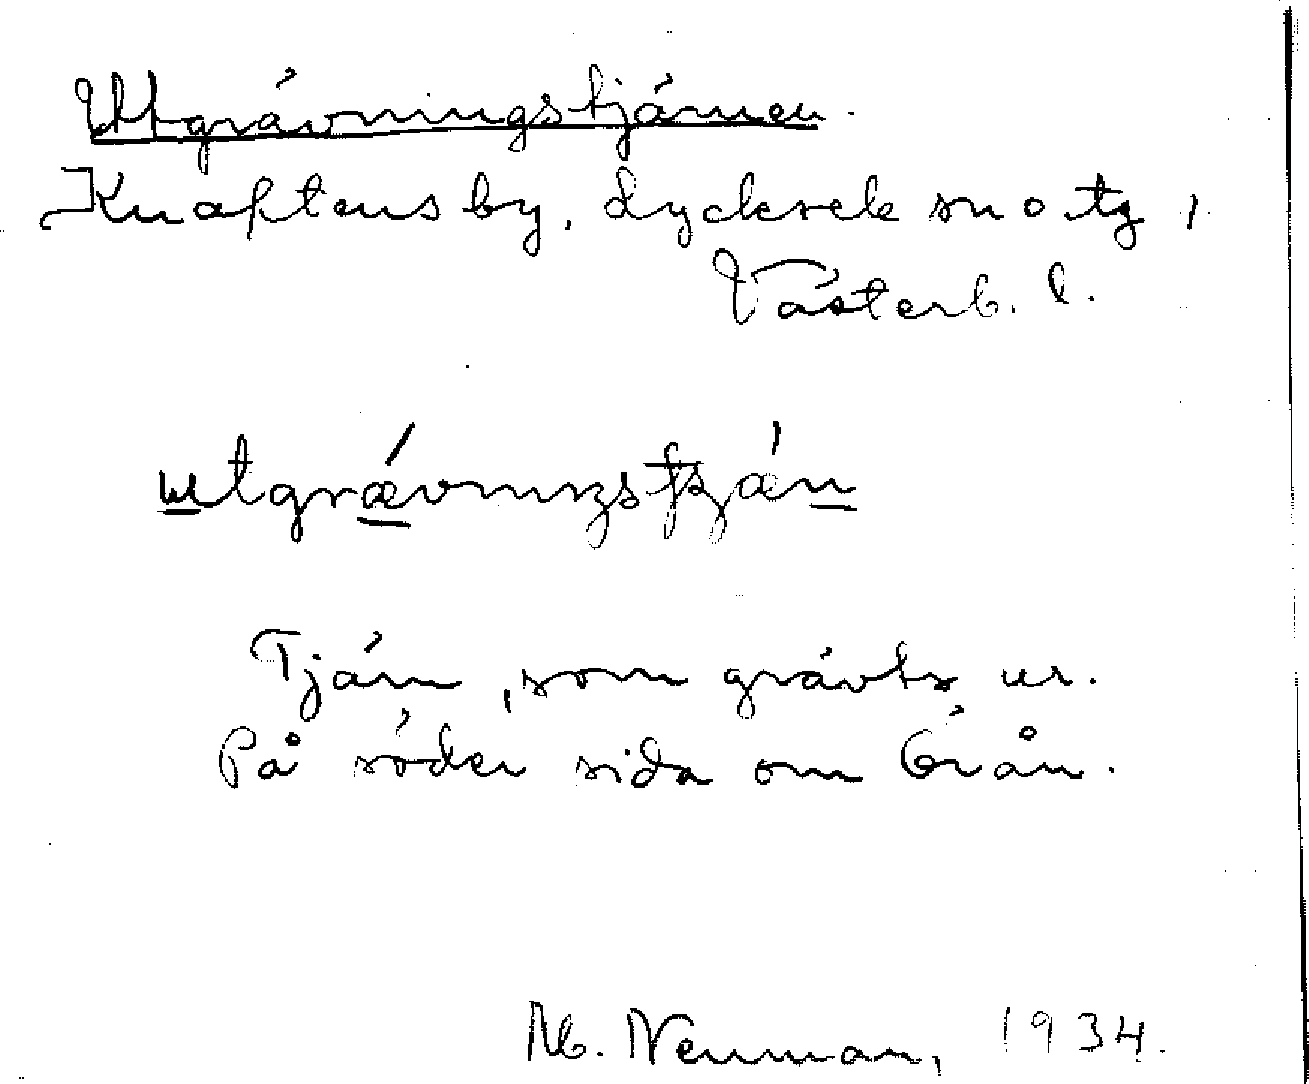 Utgrävningstjärnen.
Knaftens by, Lycksele sn o. tg,
Västerb. l.
Tjärn, som grävts ur.
På söder sida om Örån.
Neuman, 1934.